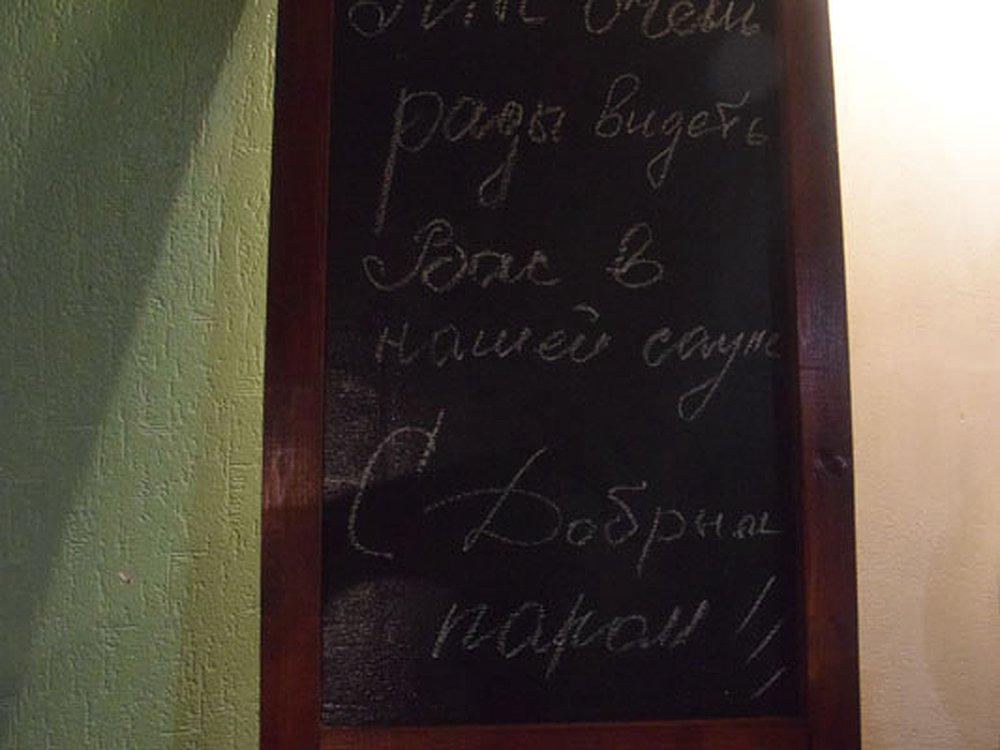 Мы очень
рады видеть
Вас в
нашей сауне
С Добрым
паром!!